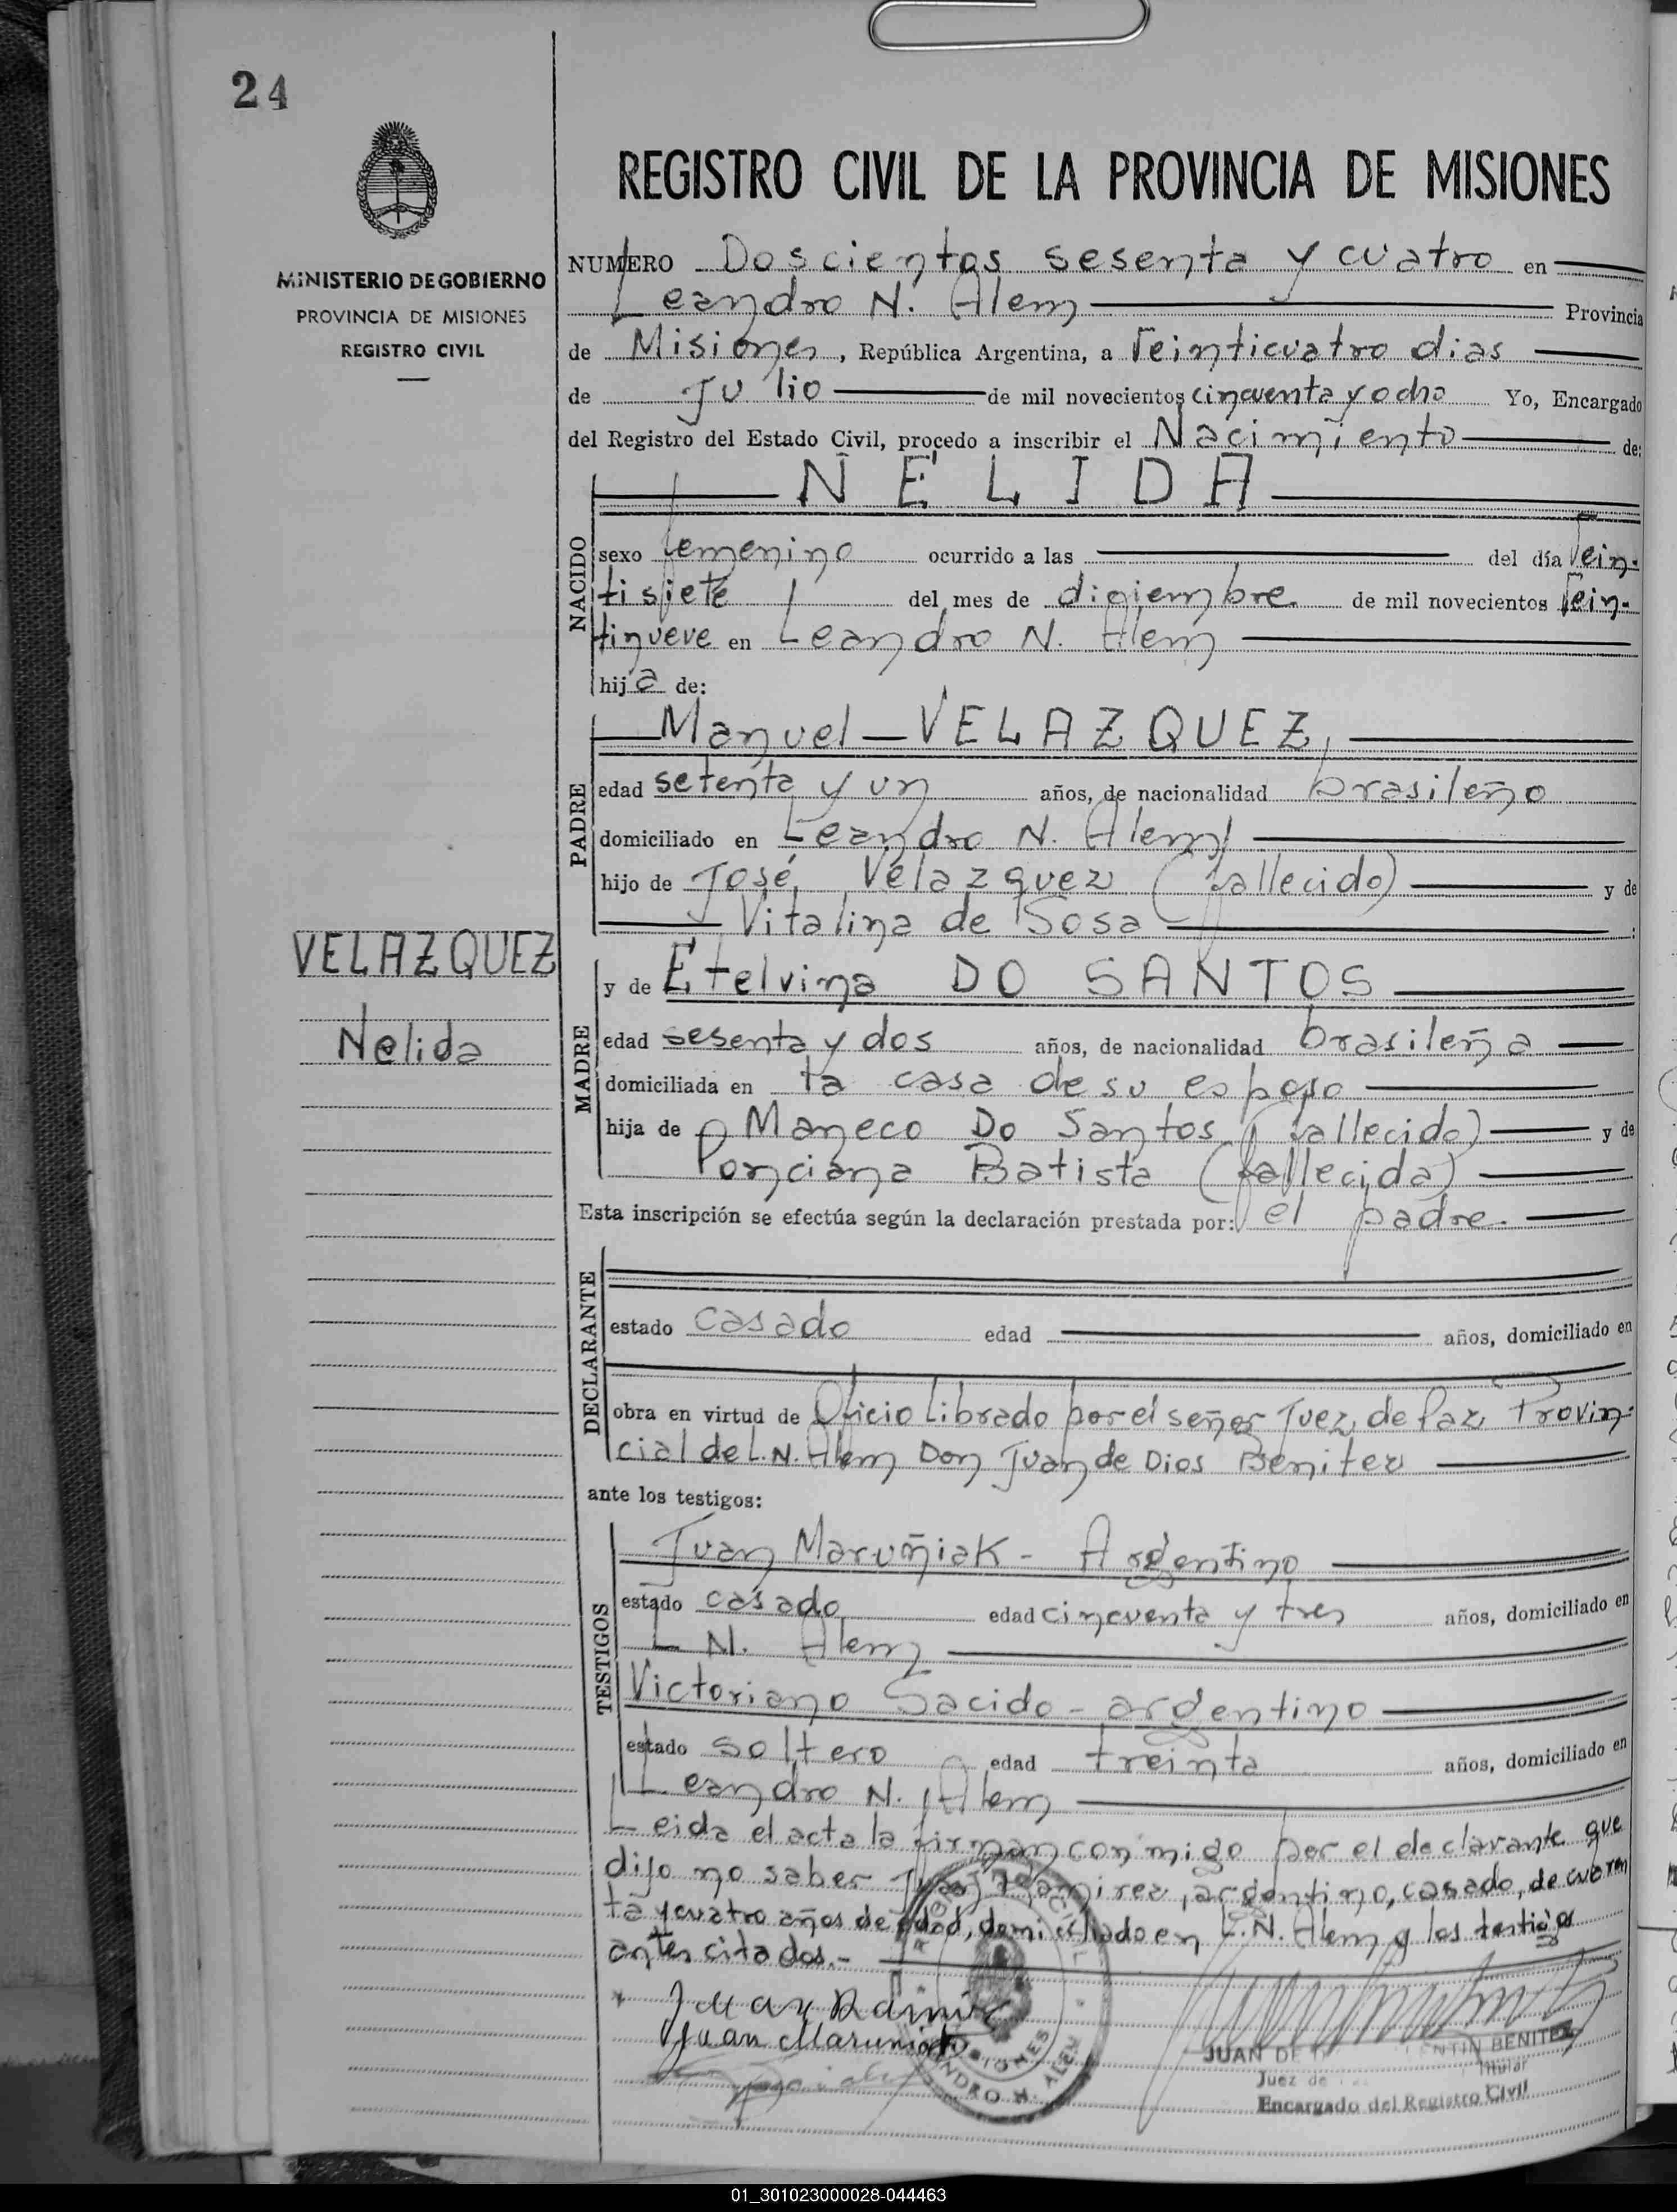 24
MINISTERIO DE GOBIERNO
PROVINCIA DE MISIONES
REGISTRO CIVIL
REGISTRO CIVIL DE LA PROVINCIA DE MISIONES
NUMERO Doscientos sesenta y cuatro en
Leandro N. Alem Provincia
de Misiones, República Argentina, a Veinticuatro dias
de Julio de mil novecientos cincuenta y ocho Yo, Encargado
del Registro del Estado Civil, procedo a inscribir el Nacimiento de:
NÉLIDA
NACIDO
sexo femenino ocurrido a las del día Vein-
tisiete del mes de diciembre de mil novecientos Vein-
tinueve en Leandro N. Alem
hija de:
PADRE
Manuel VELAZQUEZ,
edad setenta y un años, de nacionalidad brasileño
domiciliado en Leandro N. Alem
hijo de José Velazquez (fallecido) y de
Vitalina de Sosa :
VELAZQUEZ
Nelida
MADRE
y de Etelvina DO SANTOS
edad sesenta y dos años, de nacionalidad brasileña
domiciliada en la casa de su esposo
hija de Maneco Do Santos (fallecido) y de
Ponciana Batista (fallecida)
Esta inscripción se efectúa según la declaración prestada por: el padre.
DECLARANTE
estado casado edad años, domiciliado en
obra en virtud de Oficio Librado por el señor Juez de Paz Provin-
cial de L.N. Alem Don Juan de Dios Benitez
ante los testigos:
TESTIGOS
Juan Maruñiak - Argentino
estado casado edad cincuenta y tres años, domiciliado en
L N. Alem
Victoriano Sacido - argentino
estado soltero edad treinta años, domiciliado en
Leandro N. Alem
Leida el acta la firman conmigo por el declarante que
dijo no saber Juan Ramirez, argentino, casado, de cuaren
ta y cuatro años de edad, domiciliado en L.N. Alem y los testigos
antes citados.-
Juan Ramirez
Juan Maruniak
JUAN DE BENITEZ
Juez de Titular
Encargado del Registro Civil
01_301023000028-044463